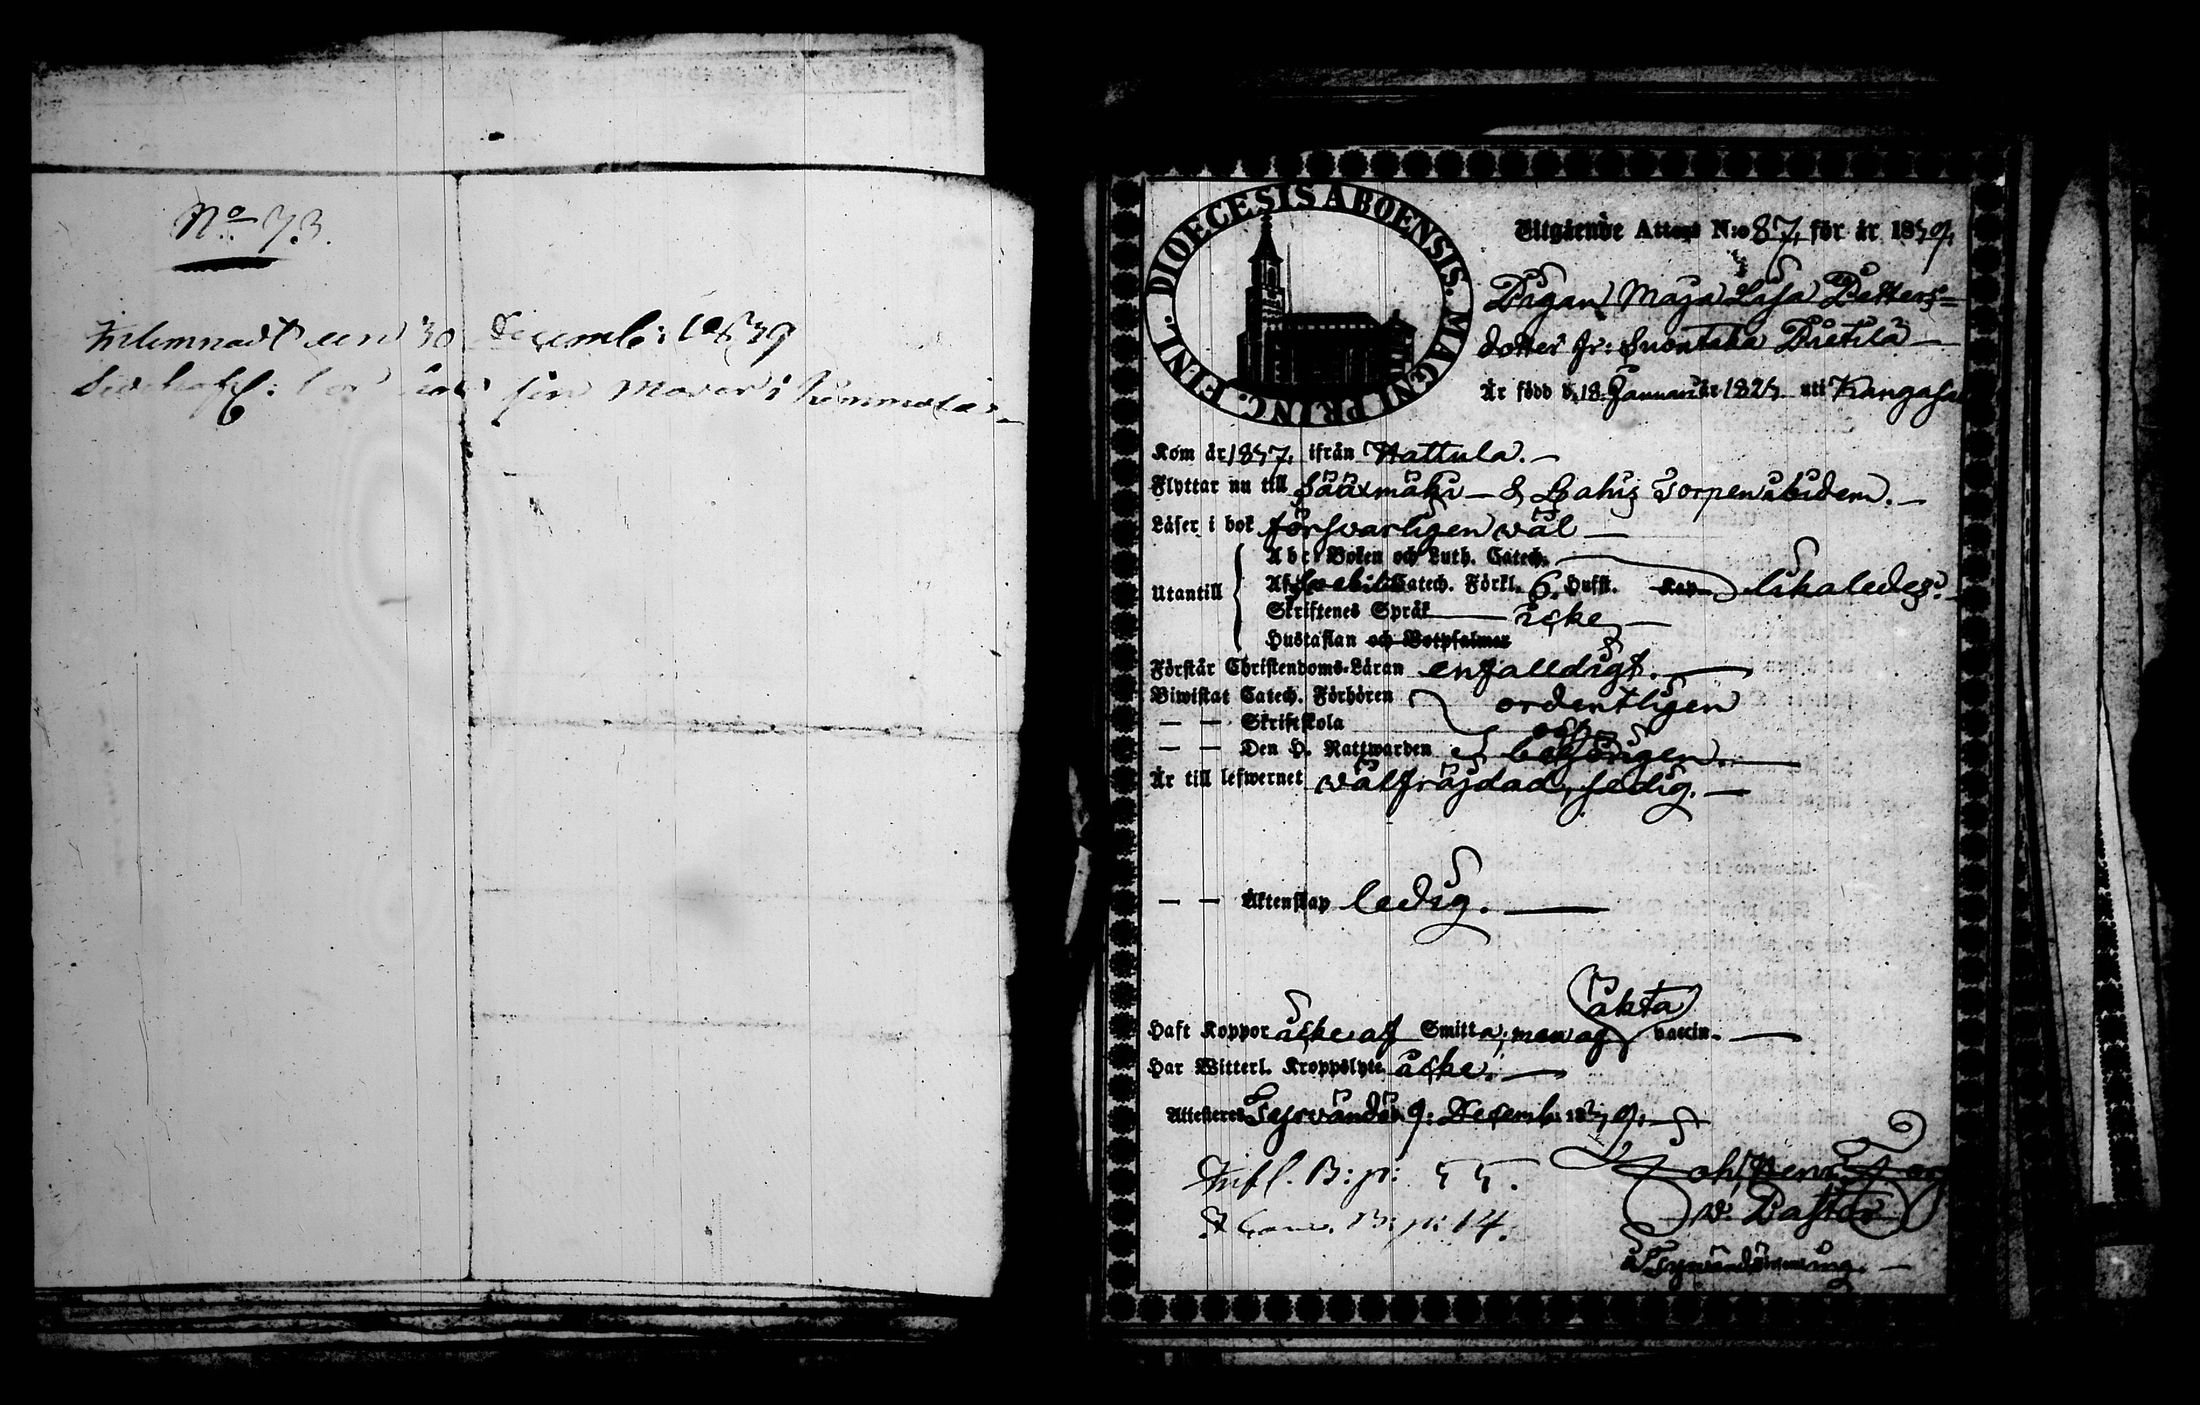 No 73.
Inlemnadt den 30 Decemb: 1859
sin Moder i
DIOECESIS ABOENSIS. MAGNI PRINC. FINL.
Utgående Attest N:o 87, för år 1859,
Pigan Maja Lisa Petters=
dotter fr: Suontaka Pietilä —
Är född d. 18 Januari år 182 uti Kangasa
Kom år 1857, ifrån Hattula. —
Flyttar nu till Sääxmäki — & Lahis Torpen åbidem. —
Läser i bok försvarligen väl —
Utantill
Abc-Boken och Luth. Catech.
Af Svebilii Catech. Förkl. 6. Hufst. Kap likaledes. —
Skriftenes Språk — icke —
Hustaflan och Botpsalmer
Förstår Christendoms-Läran enfalldigt. —
Biwistat Catech. Förhören ordentligen
— — Skriftskola och
— — Den H. Nattwarden behörigen. —
Är till lefwernet välfräjdad, ledig. —
— — Äktenskap ledig. —
äkta
Haft Koppor icke af Smitta, men af vaccin. —
Har Witterl. Kroppslyte icke. —
Attesteras Tyrvändö 9: Decemb. 1859. —
Infl. B: p: 55.
Comm. B: p: 14.
Joh. Henr.
v. Pastor